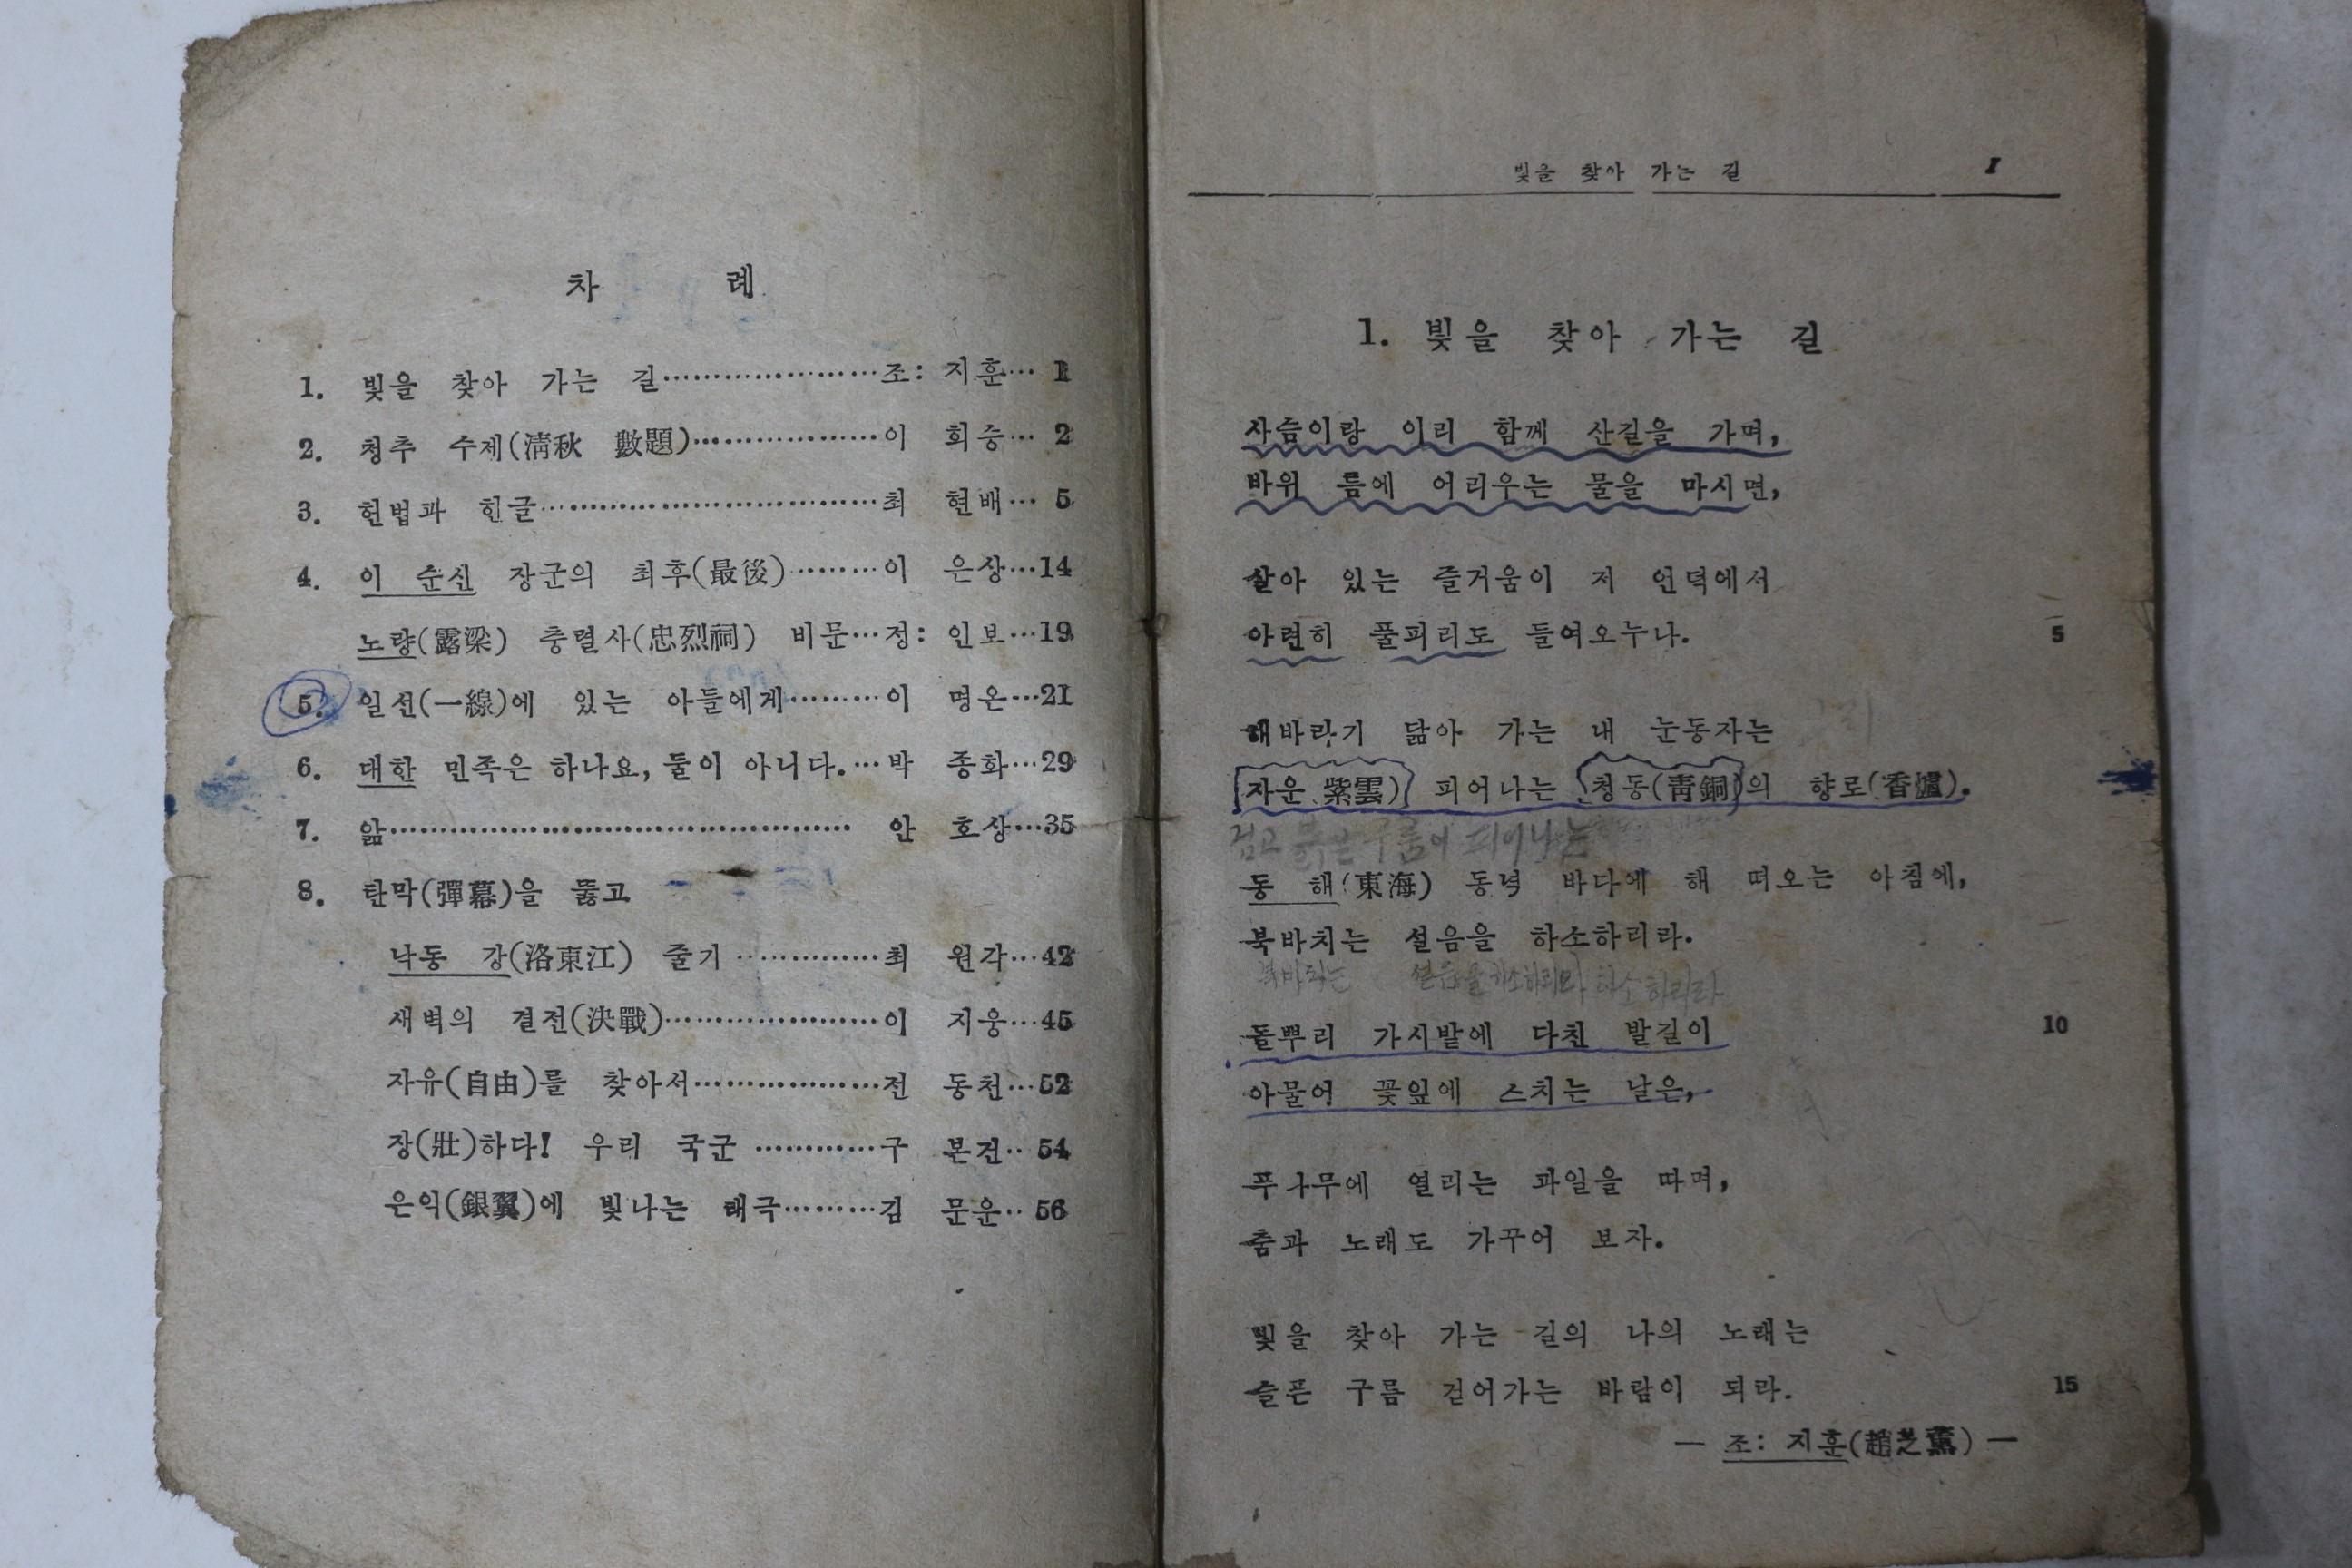 차 례
1. 빛을 찾아 가는 길…………………조: 지훈… 1
2. 청추 수제(淸秋 數題)………………이 희승… 2
3. 헌법과 한글…………………………최 현배… 5
4. 이 순신 장군의 최후(最後)………이 은상…14
노량(露梁) 충렬사(忠烈祠) 비문…정: 인보…19
5. 일선(一線)에 있는 아들에게………이 명온…21
6. 대한 민족은 하나요, 둘이 아니다.…박 종화…29
7. 앎……………………………………… 안 호상…35
8. 탄막(彈幕)을 뚫고
낙동 강(洛東江) 줄기……………최 원각…42
새벽의 결전(決戰)…………………이 지웅…45
자유(自由)를 찾아서………………전 동천…52
장(壯)하다! 우리 국군…………구 본건‥54
은익(銀翼)에 빛나는 태극………김 문운‥56
빛을 찾아 가는 길 1
1. 빛을 찾아 가는 길
사슴이랑 이리 함께 산길을 가며,
바위 틈에 어리우는 물을 마시면,
살아 있는 즐거움이 저 언덕에서
아련히 풀피리도 들여오누나. 5
해바라기 닮아 가는 내 눈동자는
자운(紫雲) 피어나는 청동(靑銅)의 향로(香爐).
검고 붉은 구름이 피어나는
동 해(東海) 동녘 바다에 해 떠오는 아침에,
북바치는 설음을 하소하리라.
북바치는 설음을 하소하리라 하소하리라
돌뿌리 가시밭에 다친 발길이 10
아물어 꽃잎에 스치는 날은,
푸나무에 열리는 과일을 따며,
춤과 노래도 가꾸어 보자.
빛을 찾아 가는 길의 나의 노래는
슬픈 구름 걷어가는 바람이 되라. 15
— 조: 지훈(趙芝薰) —